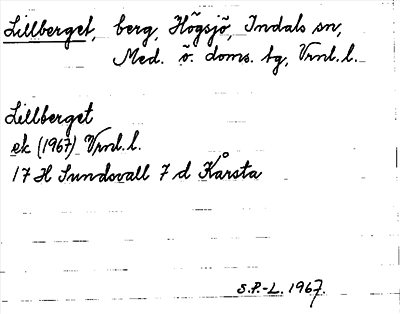 Lillberget, berg, Högsjö, Indals sn,
Med. ö. doms. tg, Vrnl. l.
Lillberget
ek (1967) Vrnl. l.
17 H Sundsvall 7 d Kårsta
S.P.-L. 1967.